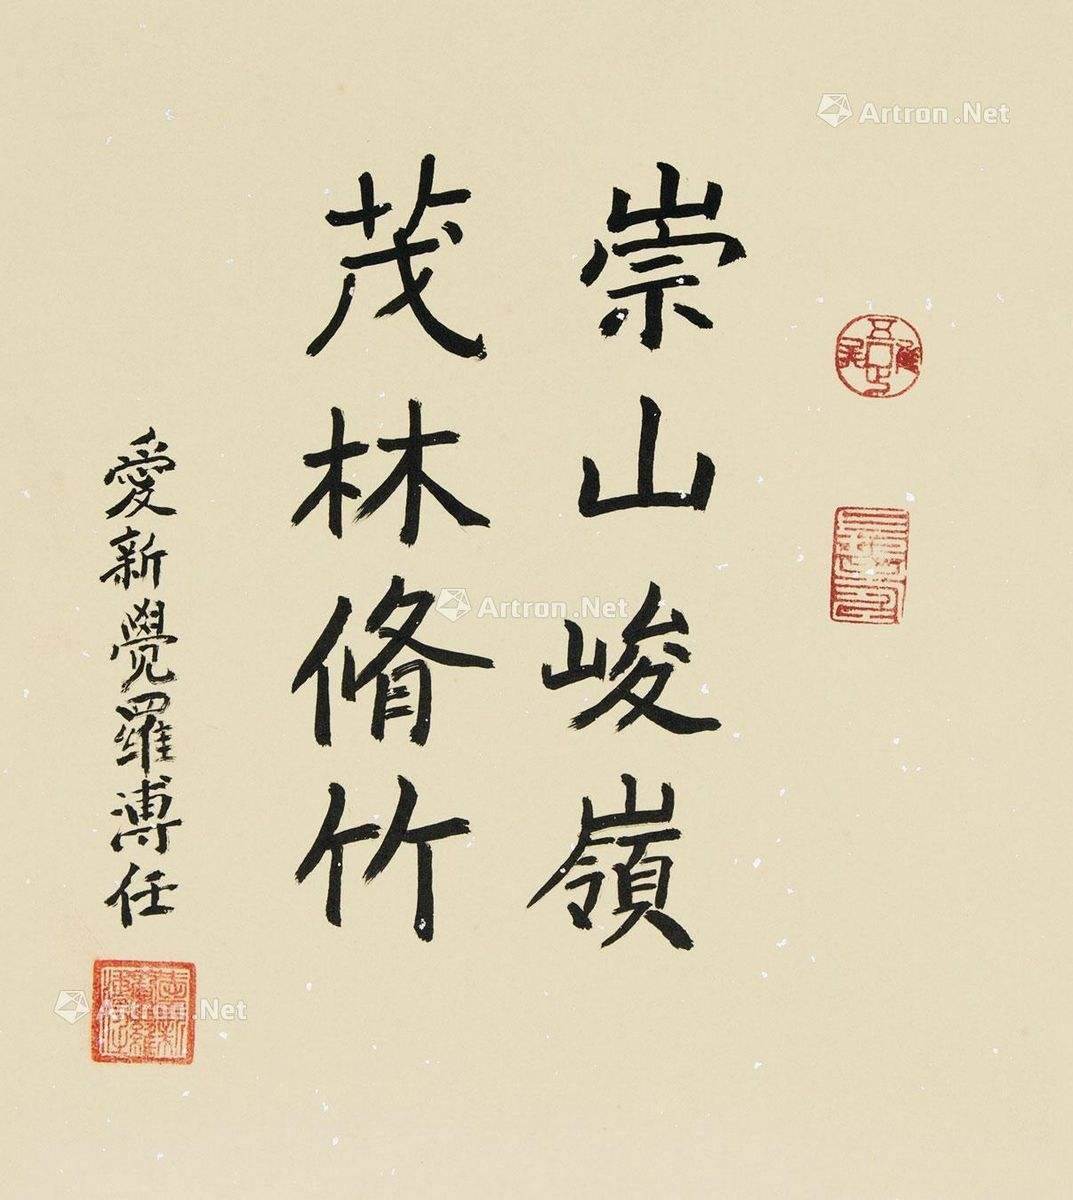 崇山峻嶺
茂林脩竹
愛新覺羅溥任
Artron.Net
Artron.Net
Artron.Net